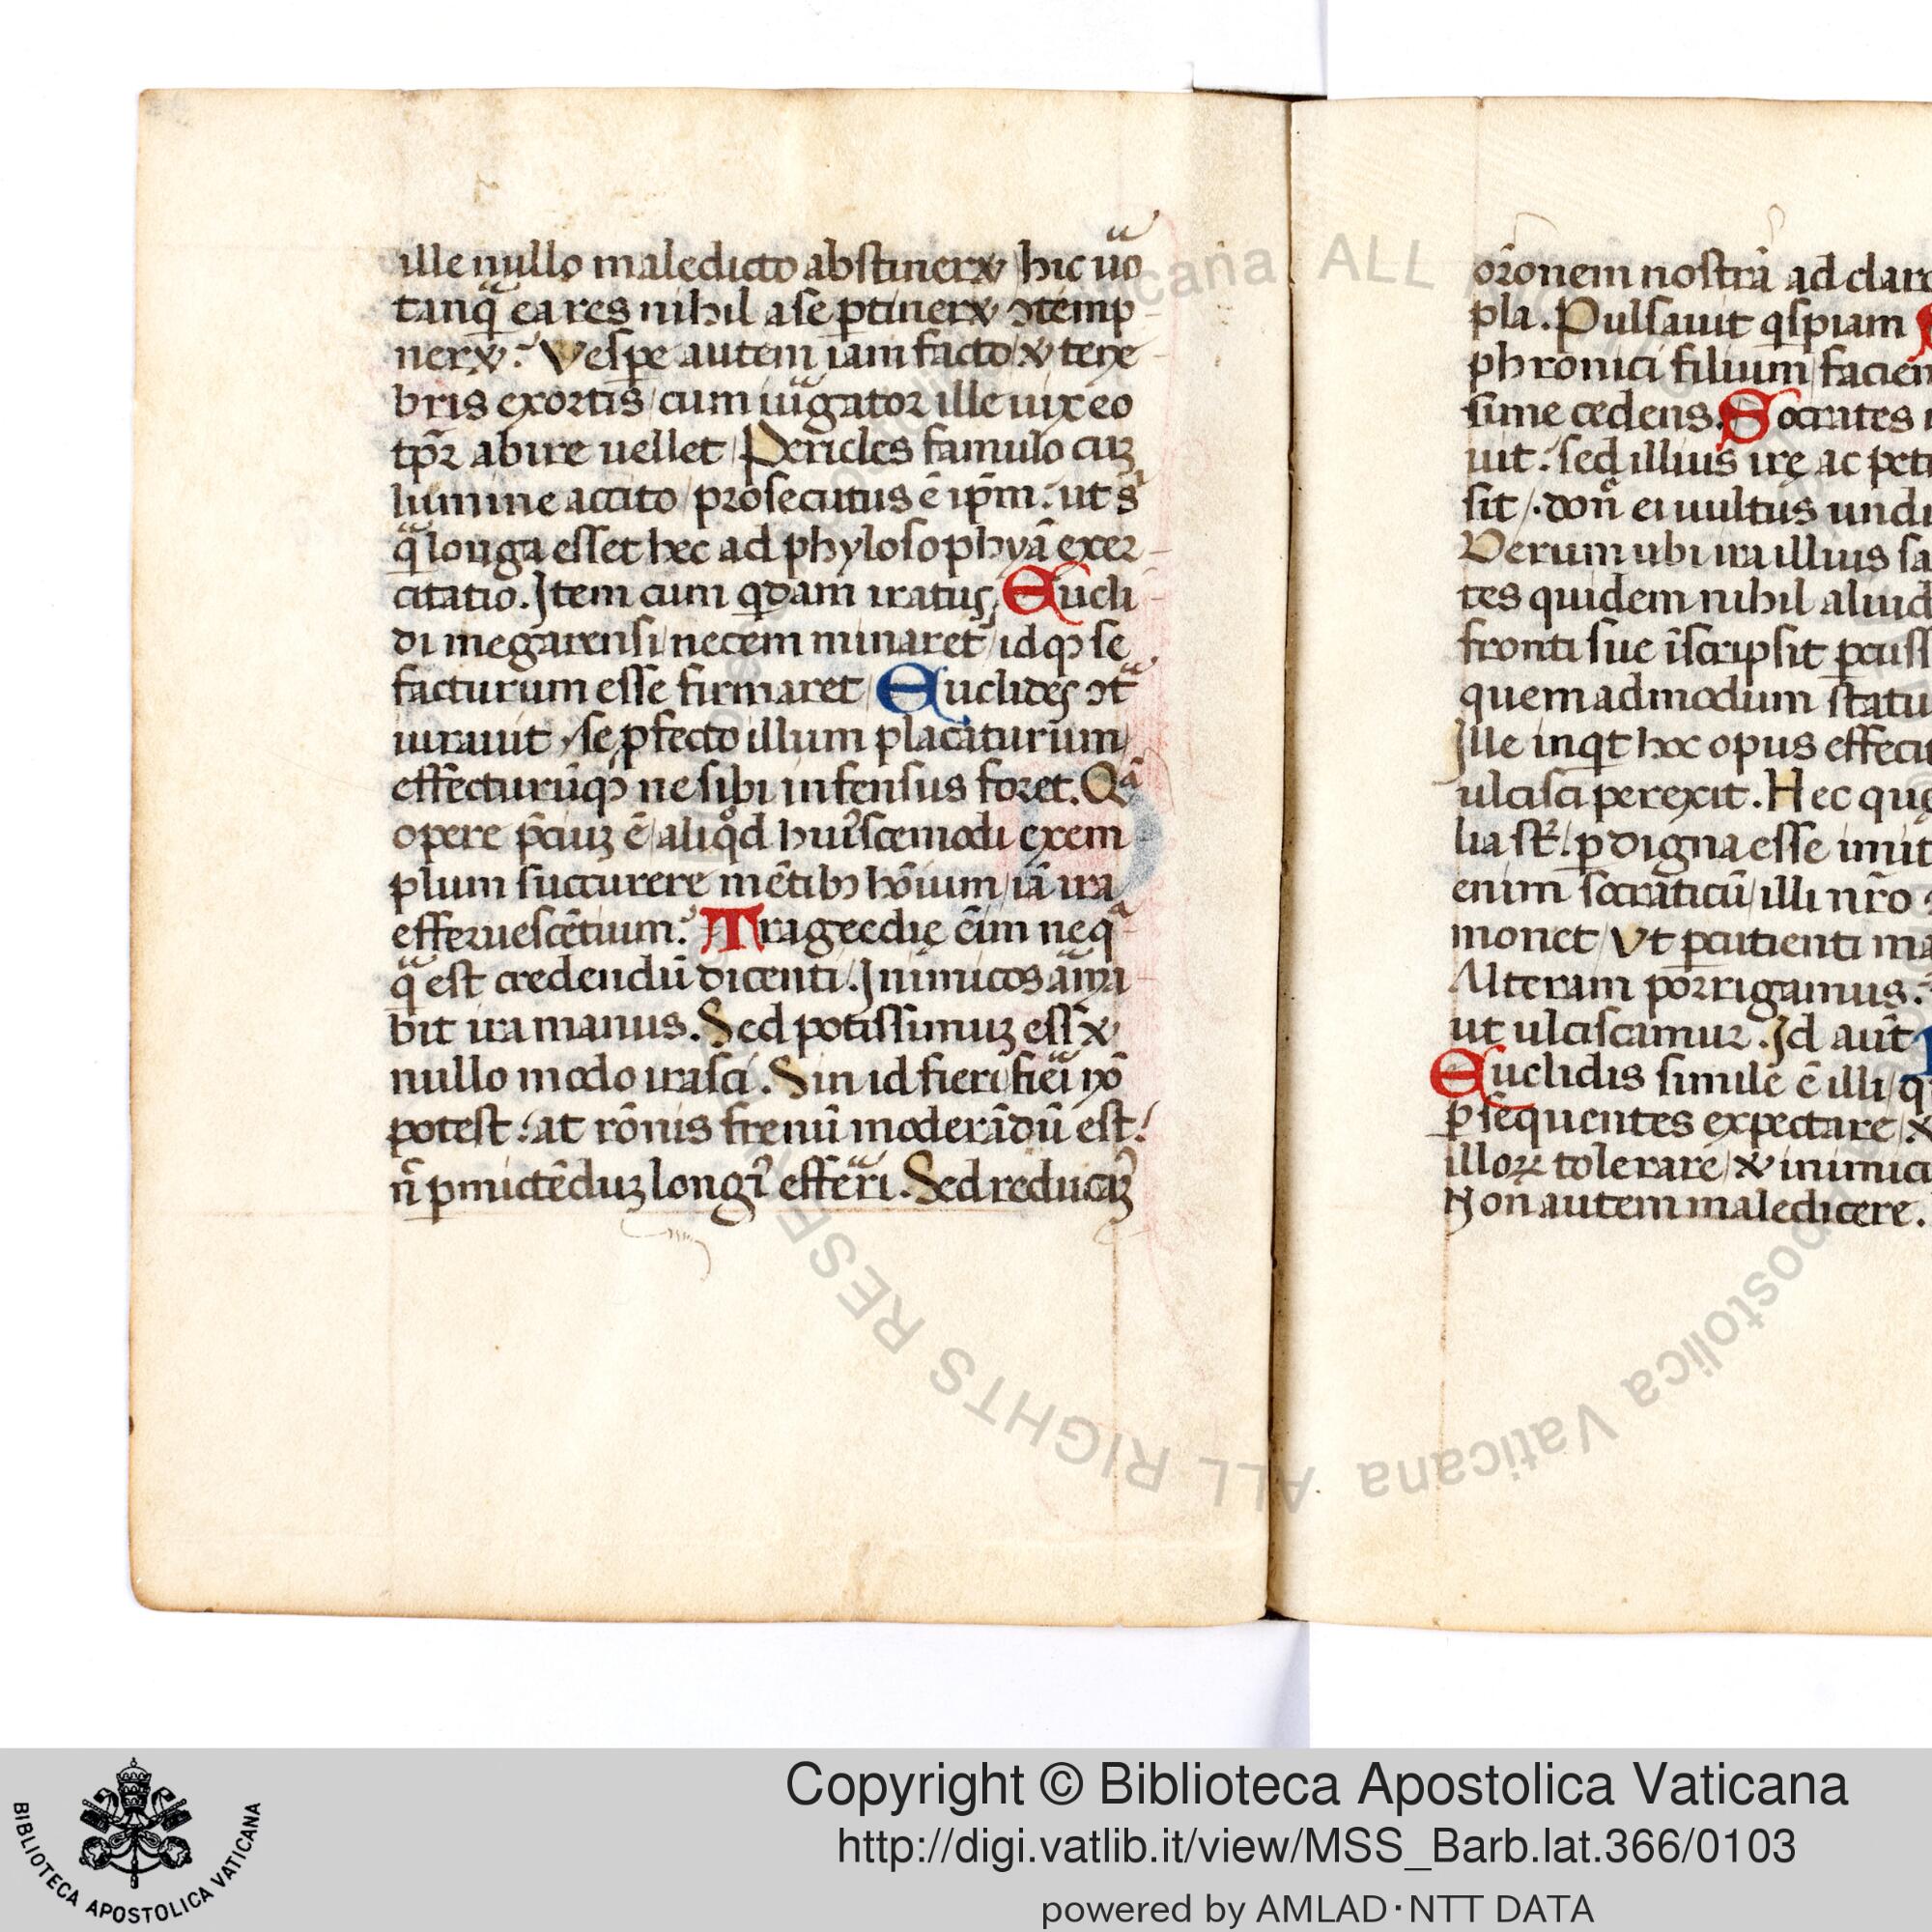 ille nullo maledicto abstineret / hic uͣo
tanqͣ ea res nihil a se ꝑtineret ↄtemp-
neret: Vesꝑe autem iam facto / et tene-
bris exortis / cum iuͣgator ille uix eo
tꝑ̃r abire uellet / Pericles famulo cuꝫ
lumine accito / prosecutus ẽ ip̃m: ut s
qͣ longa esset hec ad phylosophyã exer-
citatio. Item cum qdam iratus, Eucli-
di megarensi / necem minaret / idqꝫ se
facturum esse firmaret / Euclides ↄtͣ
iurauit, se ꝓfecto illum placaturum /
effecturũqꝫ ne sibi infensus foret. Qã
opere p̃ciuꝫ ẽ / aliqͦd huiꝰscemodi exem-
plum succurere mẽtibꝫ hõium / iã ira
efferuescẽtium: Tragoedie ẽim neqͣ-
qͣ est credendũ dicenti. Inimicos aͣma-
bit ira manus. Sed potissimuꝫ ess&
nullo modo irasci. Sin id fieri fieͣi nõ
potest: at rõnis frenũ moderãdũ est:
ñ ꝑmictẽduꝫ longiꝰ effeͣri. Sed reducaꝫ
or̃onem nostrã ad clar
pla. Pulsauit qspiam
phronici filium / facien
sime cedens. Socrates
uit: sed illius ire ac pet
sit / . donͦ ei uultus und
Verum ubi ira illius sa
tes quidem nihil aliud
fronti sue ĩscripsit ꝑcuss
quemadmodum statu
Ille inqt hoc opus effecit
ulcisci perexit. Hec que
lia st̃. ꝑ digna esse imit
enim socraticũ / illi nr̃o
monet / Vt ꝑcutienti ma
Alteram porrigamus:
ut ulciscamur. Id aũt
Euclidis simile ẽ illi / q
ꝑsequentes expectare / &
illoꝝ tolerare / & inimici
Non autem maledicere.
Vaticana ALL RIGHTS RESERVED
Apostolica Vaticana ALL RIGHTS RESE
BIBLIOTECA APOSTOLICA VATICANA
Copyright © Biblioteca Apostolica Vaticana
http://digi.vatlib.it/view/MSS_Barb.lat.366/0103
powered by AMLAD·NTT DATA